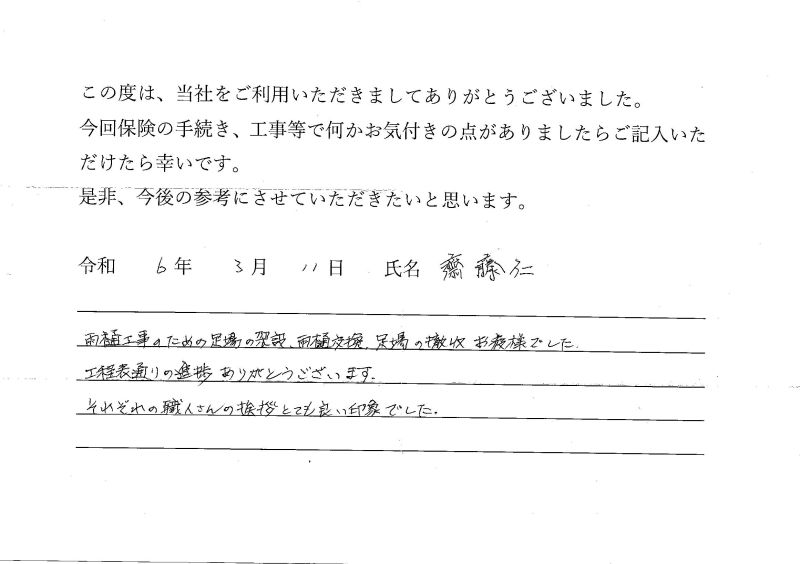 この度は、当社をご利用いただきましてありがとうございました。
今回保険の手続き、工事等で何かお気付きの点がありましたらご記入いた
だけたら幸いです。
是非、今後の参考にさせていただきたいと思います。
令和 6年 3月 11日 氏名 齋藤仁
雨樋工事のための足場の架設、雨樋交換、足場の撤収 お疲様でした。
工程表通りの進捗 ありがとうございます。
それぞれの職人さんの挨拶とても良い印象でした。